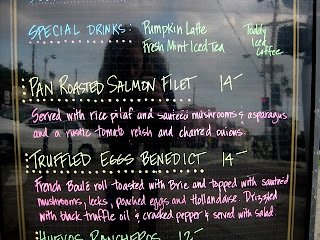 SPECIAL DRINKS: Pumpkin Latte Toddy
Fresh Mint Iced Tea Iced
Coffee
PAN ROASTED SALMON FILET 14-
Served with rice pilaf and sauteed mushrooms & asparagus
and a rustic tomato relish and charred onions.
TRUFFLED EGGS BENEDICT 14-
French Boule roll toasted with Brie and topped with sauteed
mushrooms, leeks, poached eggs and Hollandaise. Drizzled
with black truffle oil & cracked pepper & served with salad.
HUEVOS RANCHEROS 12-